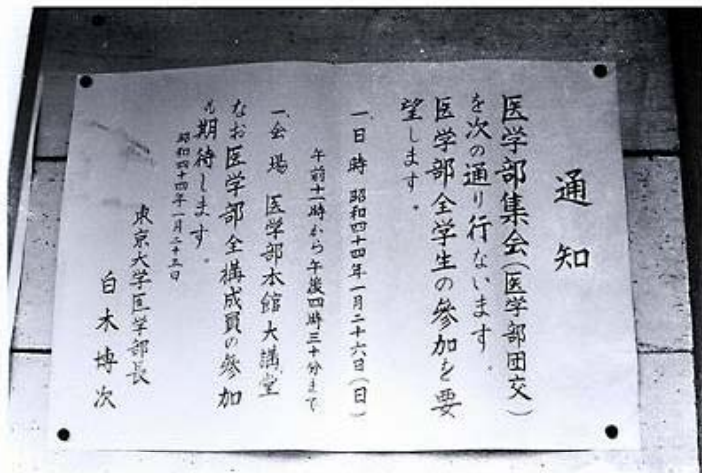 通知
医学部集会(医学部団交)
を次の通り行ないます。
医学部全学生の参加を要
望します。
一、日時 昭和四十四年一月二十六日(日)
午前十一時から午後四時三十分まで
一、会場 医学部本館大講堂
なお医学部全構成員の参加
も期待します。
昭和四十四年一月二十五日
東京大学医学部長
白木博次